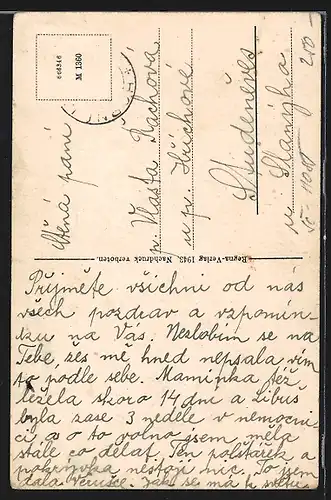 646346
M 1360
Ctěná paní
Vlasta Rachová
u p. Hříchové
Studeněves
u Slaného
Regna-Verlag 1943. Nachdruck verboten.
Přijměte všichni od nás
všech pozdrav a vzpomín-
ku na Vás. Nezlobím se na
Tebe, žes mě hned nepsala vím
to podle sebe. Maminka též
ležela skoro 14 dní a Libuš
byla zase 3 neděle v nemocni
ci a o to volno jsem měla
stále co dělat. Ten polštářek a
pokrývka nestojí nic. To jsem
dala Věrušce. Jak se má